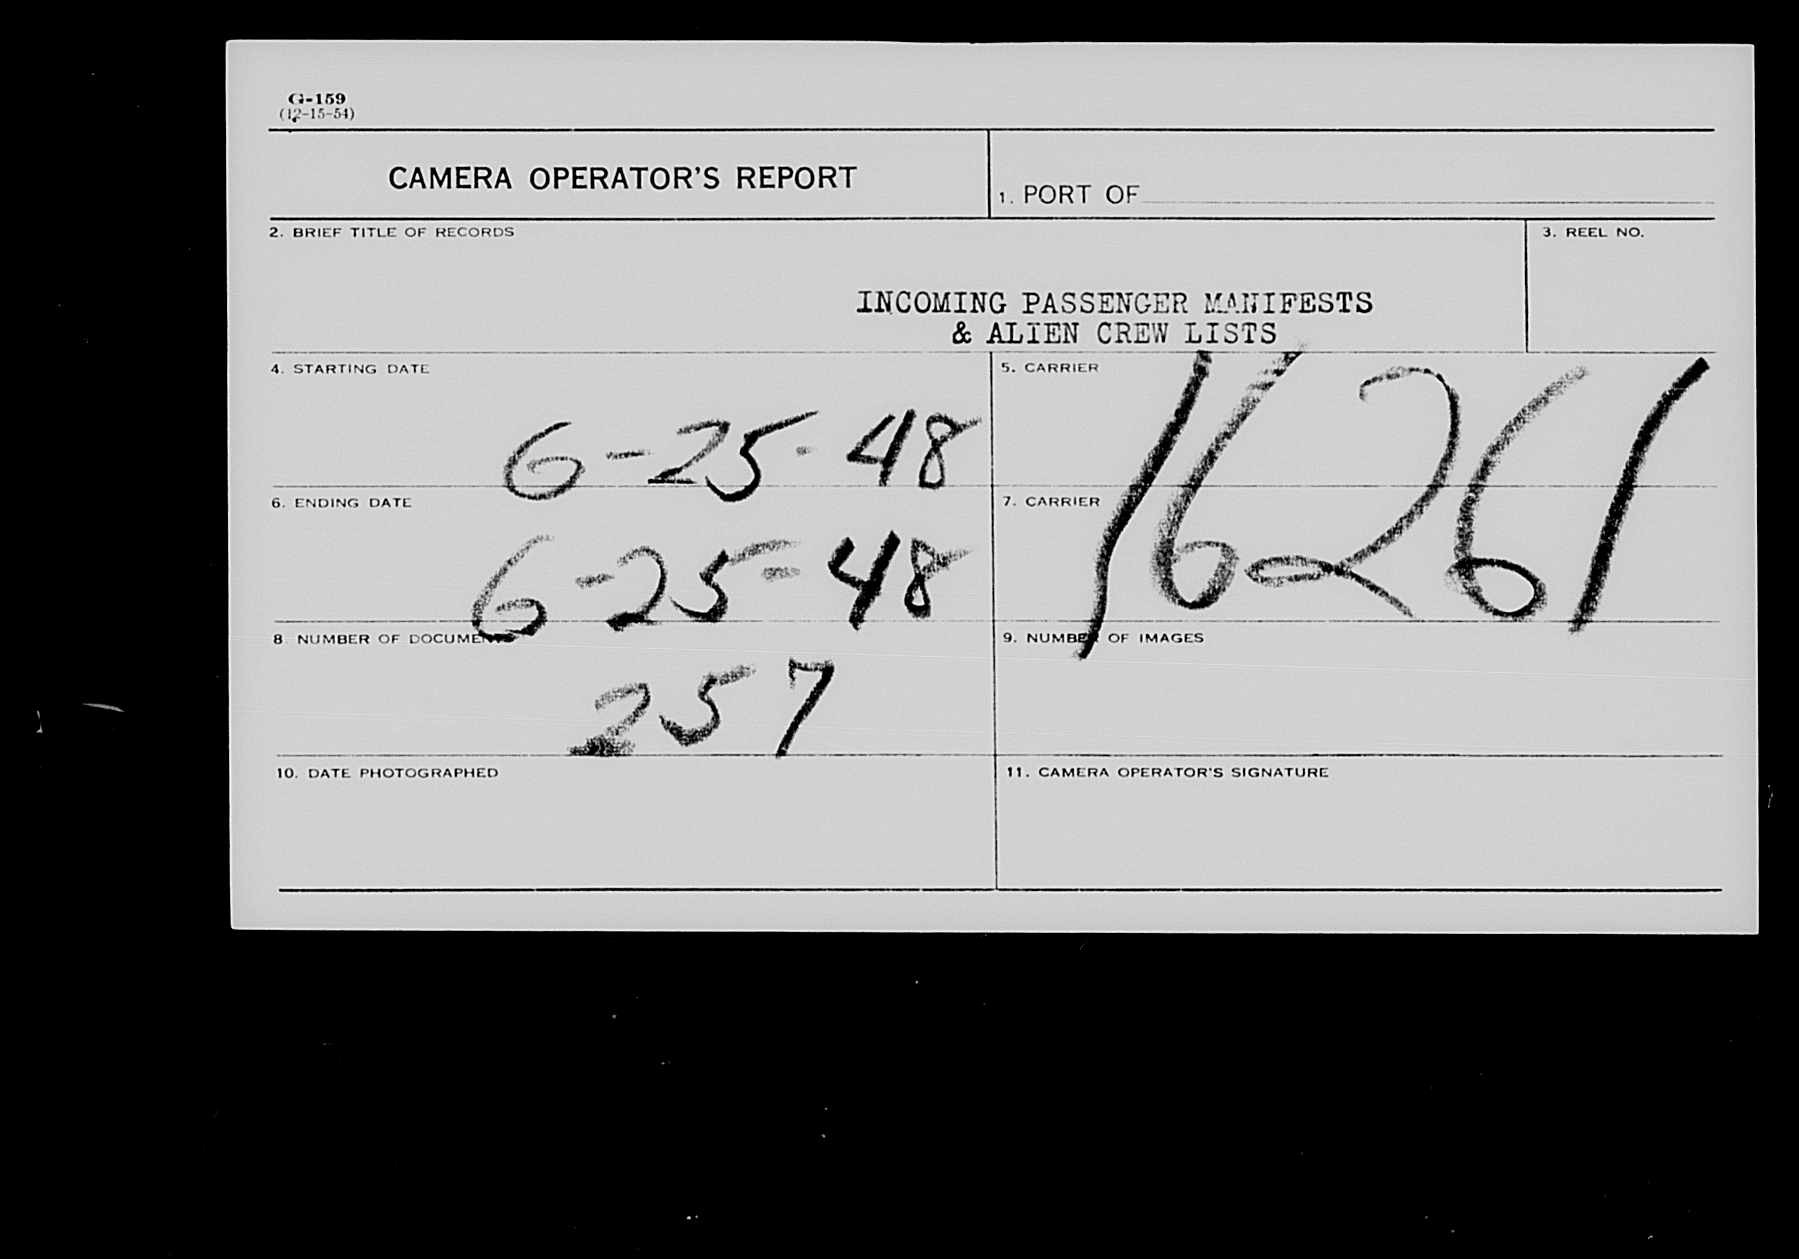 G-159
(12-15-54)
CAMERA OPERATOR'S REPORT
1. PORT OF
2. BRIEF TITLE OF RECORDS
3. REEL NO.
INCOMING PASSENGER MANIFESTS
& ALIEN CREW LISTS
4. STARTING DATE
6-25-48
5. CARRIER
16261
6. ENDING DATE
6-25-48
7. CARRIER
8. NUMBER OF DOCUMENTS
257
9. NUMBER OF IMAGES
10. DATE PHOTOGRAPHED
11. CAMERA OPERATOR'S SIGNATURE